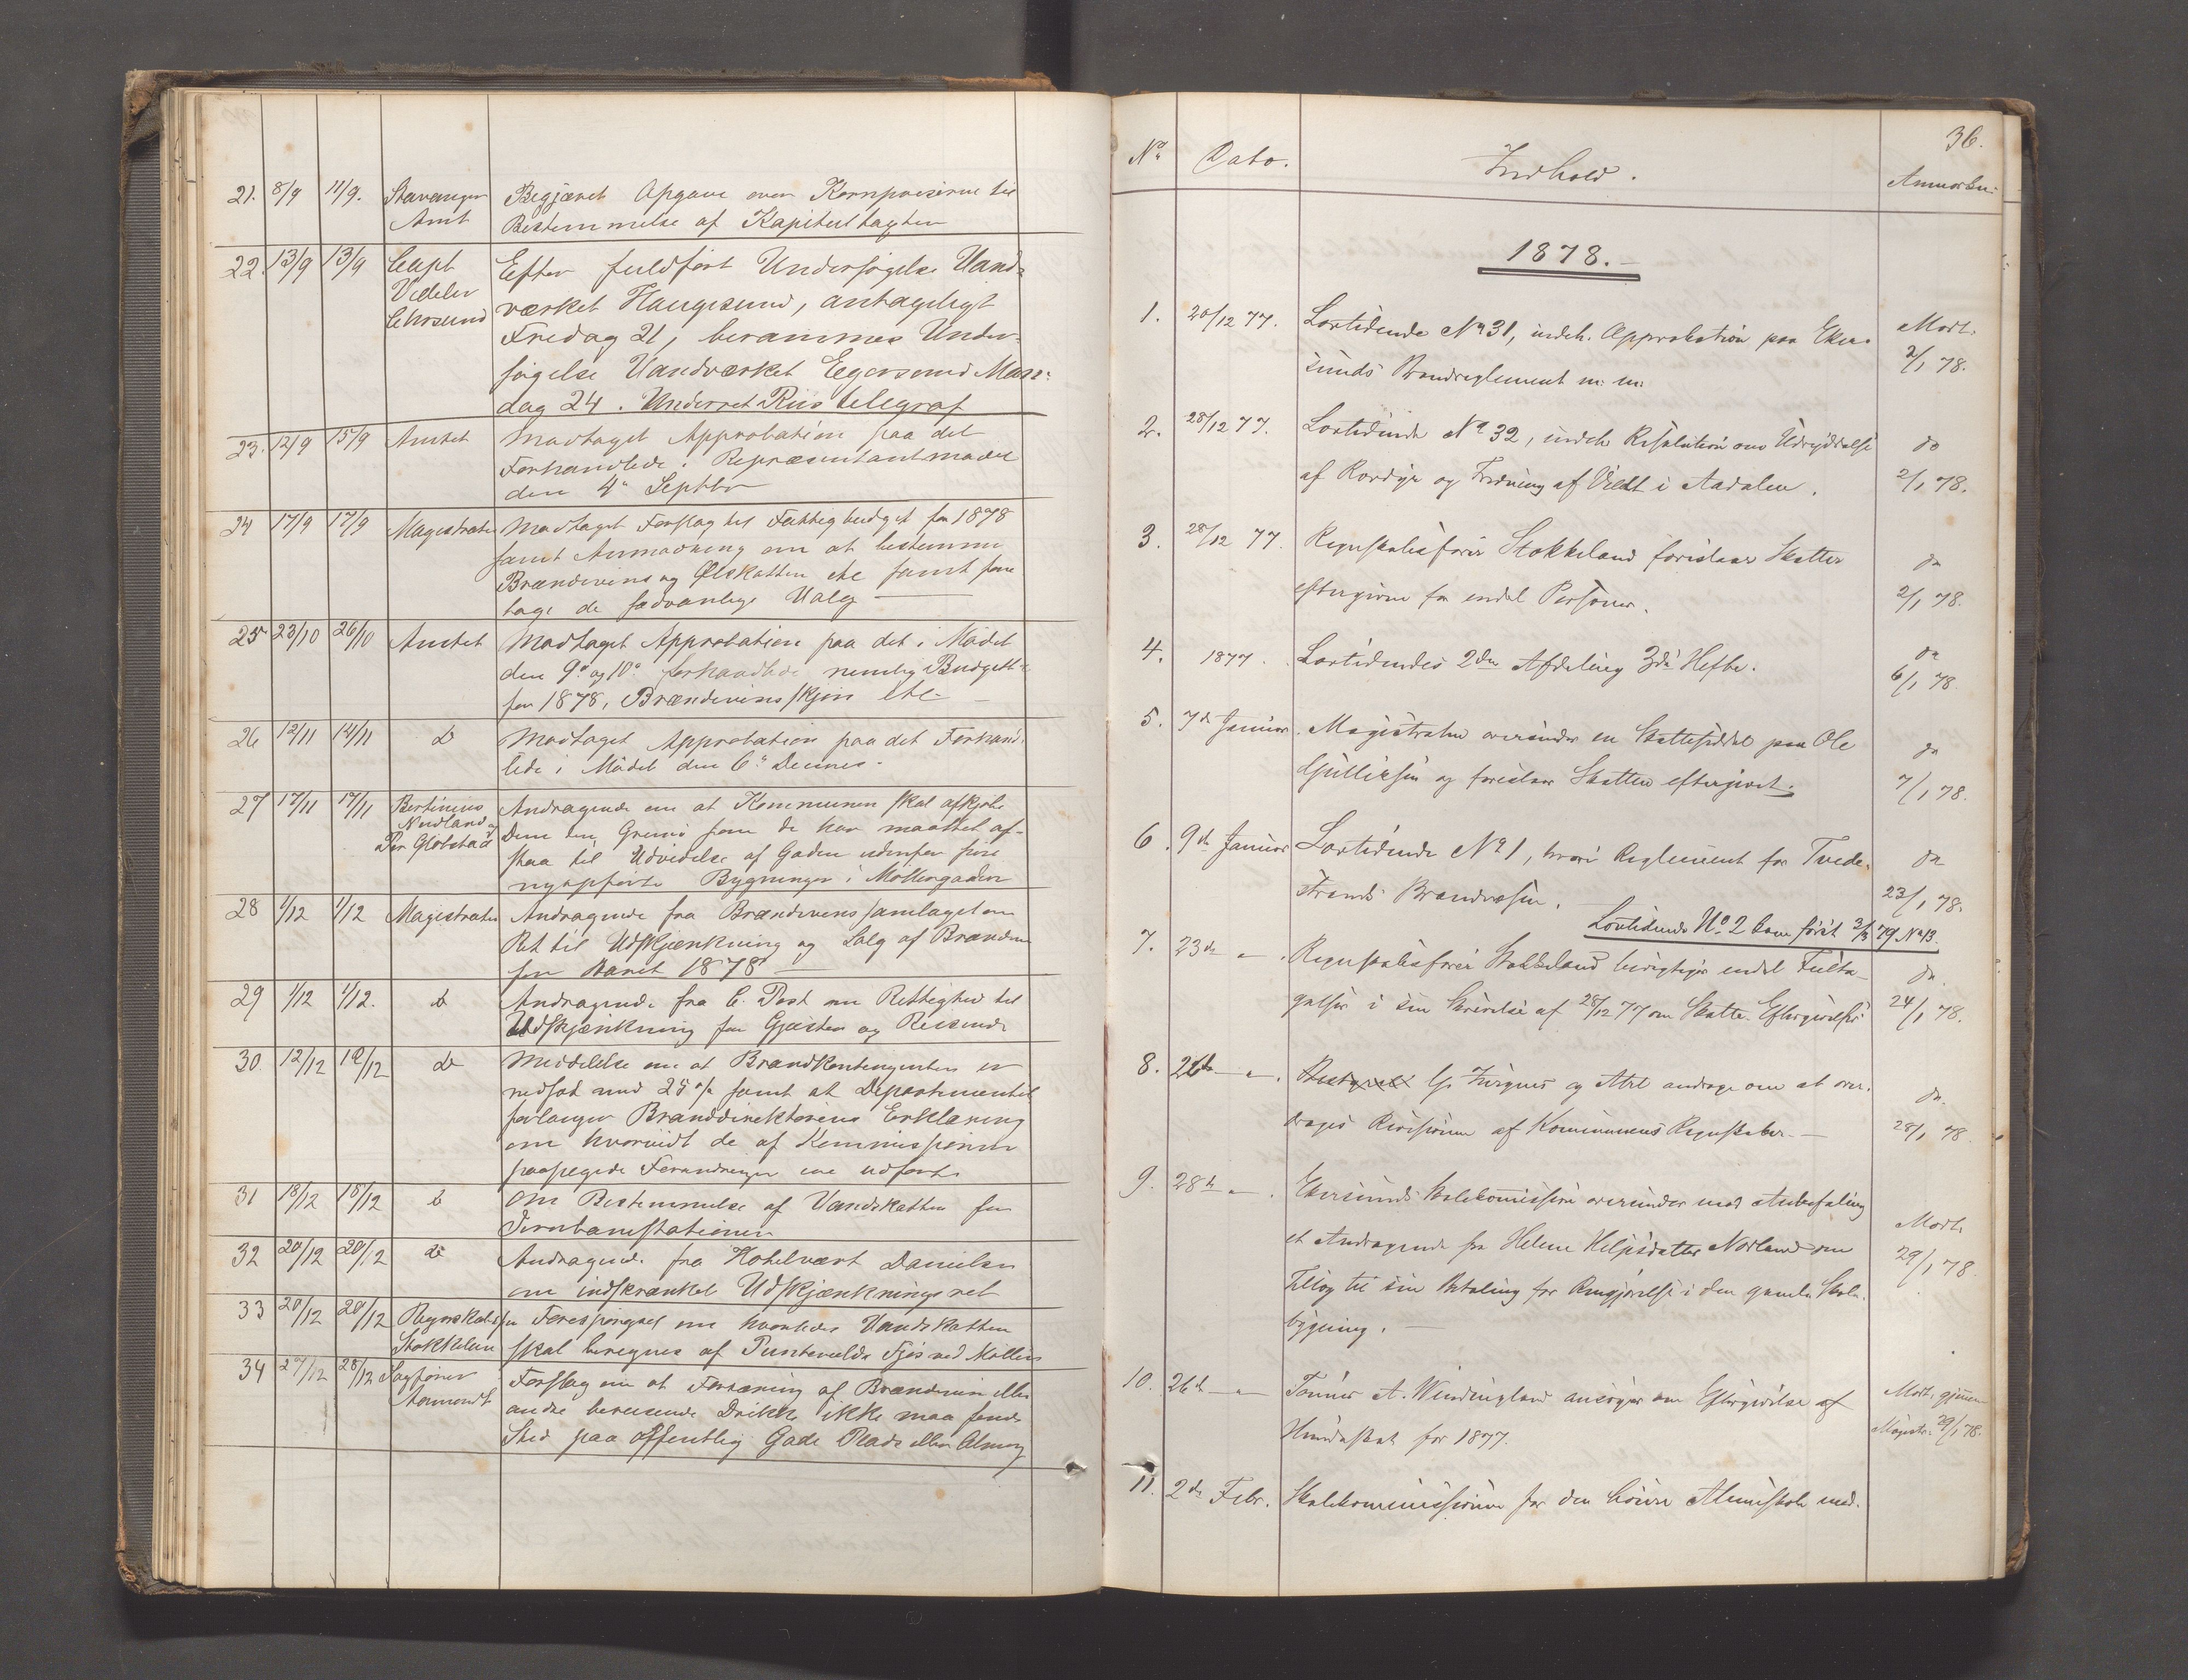 21. 8/9 11/9. Stavanger Begjæret Opgave over Kornpriserne til
Amt Bestemmelse af Kapitelstaxten
22. 13/9 13/9 Capt Efter fuldført Undersøgelse Vand-
Vedeler værket Haugesund, antageligt
Fredag 21, berammes Under-
søgelse Vandværket Egersund Man-
dag 24. Underret Riis telegraf
23. 12/9 15/9 Amtet Modtaget Approbation paa det
Forhandlede i Repræsentantmødet
den 4de Septbr
24 17/9 17/9 Magistraten Modtaget Forslag til Fattigbudget for 1878
samt Anmodning om at bestemme
Brændevins og Ølskatten etc samt fore
tage de sædvanlige Valg
25 23/10 26/10 Amtet Modtaget Approbation paa det i Mødet
den 9de og 10de forhandlede nemlig Budgett
for 1878, Brændevinsskjøn etc
26 12/11 14/11 do Modtaget Approbation paa det Forhand-
lede i Mødet den 6te Dennes.
27 17/11 17/11 Bertinius Andragende om at Kommunen skal afkjøbe
Nordland og Dem den Grund som de har maattet af-
Per Globstad staa til Udvidelse af Gaden udenfor sine
nyopførte Bygninger i Møllergaden
28 1/12 1/12 Magistraten Andragende fra Brændevinssamlaget om
Ret til Udskjænkning og Salg af Brændevin
for Aaret 1878
29 1/12 1/12. do Andragende fra C. Post om Rettighed til
Udskjænkning for Gjæster og Reisende
30 12/12 12/12 do Meddelelse om at Brandkontingenten er
nedsat med 25 % samt at Departementet
forlanger Branddirektørens Erklæring
om hvorvidt de af Kommissionen
paapegede Forandringer ere udførte
31 18/12 18/12 do Om Bestemmelse af Vandskatten for
Jernbanestationen
32 20/12 20/12 do Andragende fra Hotelvært Danielsen
om indskrænket Udskjænkningsret
33 20/12 20/12 Regnskabsfør Forespørgsel om hvorledes Vandskatten
Stokkeland skal beregnes af Puntervolds Fjøs ved Møllen
34 27/12 28/12 Sagfører Forslag om at Fortæring af Brændevin eller
andre berusende Drikke ikke maa finde
Sted paa offentlig Gade Plads eller Almvei
36.
No. Dato. Indhold. Anmærkn.
1878.
1. 20/12 77. Lovtidende No 31, indeh. Approbation paa Eker- Modt.
sunds Brandreglement m: m: 2/1 78.
2. 28/12 77. Lovtidende No 32, indeh. Resolution om Udryddelse do
af Rovdyr og Fredning af Vildt i Aadalen. 2/1 78.
3. 28/12 77. Regnskabsfører Stokkeland foreslaar Skatter do
eftergivne for endel Personer. 2/1 78.
4. 1877. Lovtidendes 2den Afdeling 3die Hefte. do
6/1 78.
5. 7de Januar. Magistraten oversender en Skatteseddel paa Ole do
Gulliksen og foreslaar Skatten eftergivet. 7/1 78.
6. 9de Januar Lovtidende No 1, hvori Reglement for Tvede- do
strands Brandvæsen. 23/1 78.
Lovtidende No. 2 kom først 2/3 79 No 13.
7. 23de " . Regnskabsfører Stokkeland berigtiger endel Feilta- do.
gelser i sin Skrivelse af 28/12 77 om Skatte-Eftergivelser 24/1 78.
8. 26de " . G. Zwignes og Atre andrage om at over- do.
drages Revisionen af Kommunens Regnskaber. 28/1 78
9. 28de " . Ekersunds Skolekommission oversender med Anbefaling
et Andragende fra Helene Helgesdatter Nodland om Modt.
Tillæg til sin Betaling for Rengjørelse i den gamle Skole- 29/1 78.
bygning.
10. 26de " Tønnes A. Windingland ansøger om Eftergivelse af Modt. gjennem
Hundeskat for 1877. Magistr. 29/1 78.
11. 2de Febr. Skolekommissionen for den høiere Almueskole med-